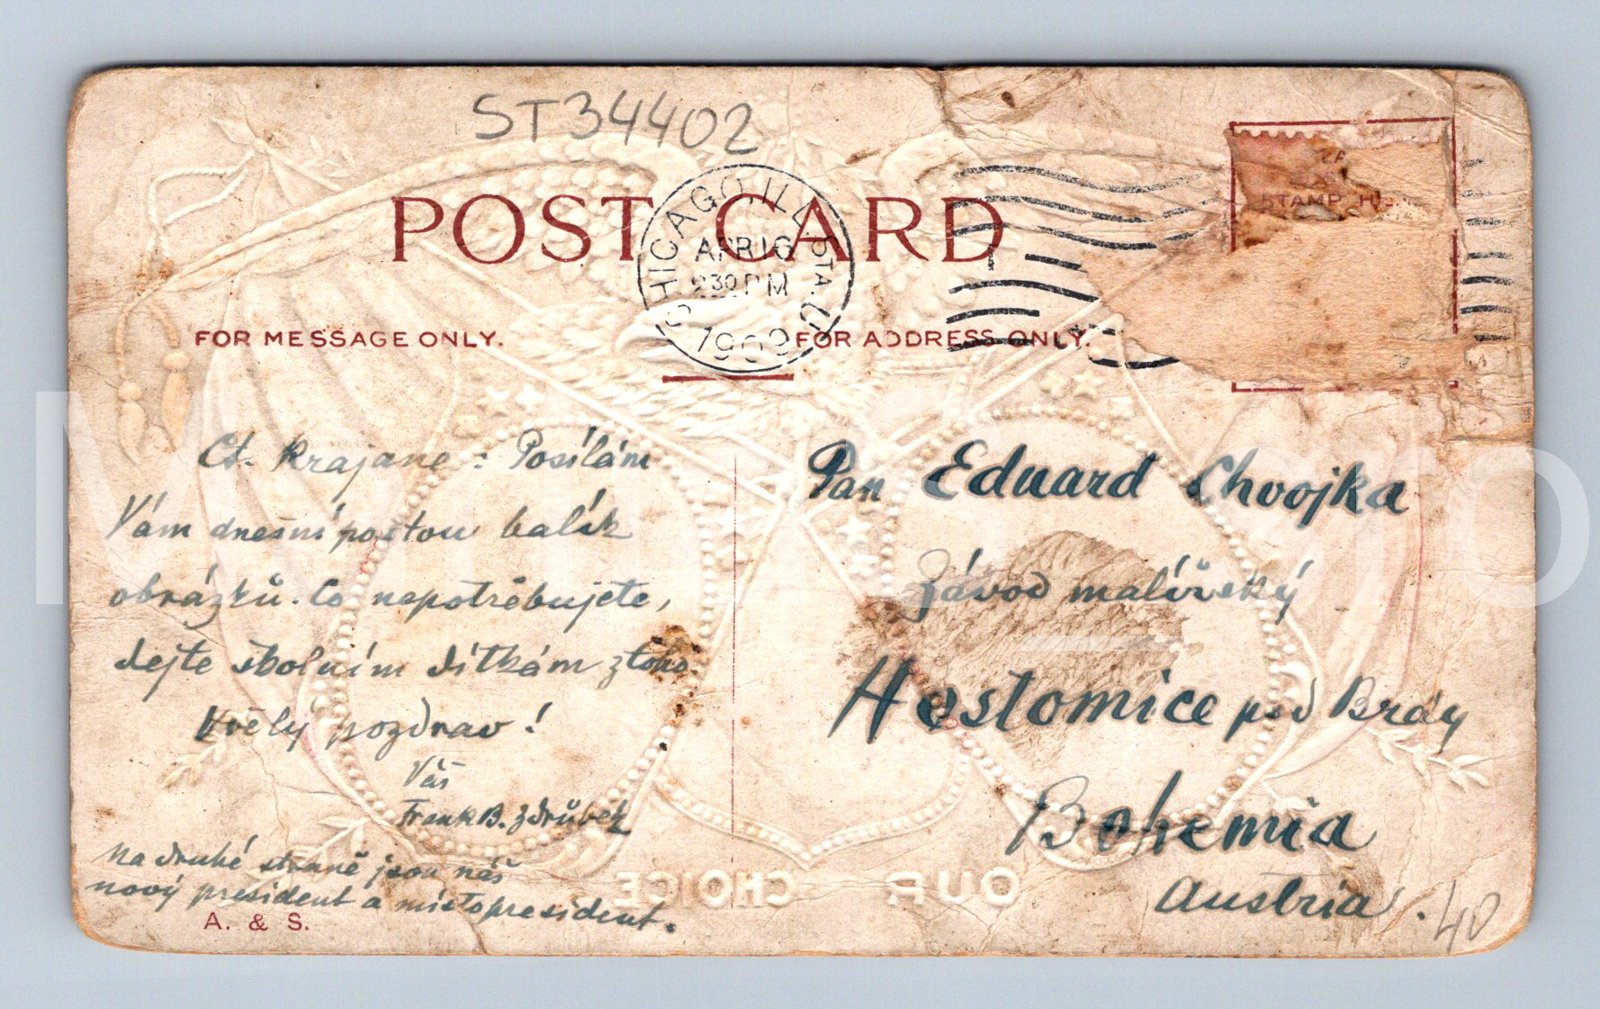 ST34402
POST CARD
CHICAGO, ILL. STA. U
APR 16
30 PM
1909
FOR MESSAGE ONLY.
FOR ADDRESS ONLY.
STAMP H
Ct. Krajane: Posílám
Vám dnešní poštou balík
obrázků. Co nepotřebujete,
dejte školním dítkám z toho.
Vřelý pozdrav!
Váš
Frank B. Zdrůbek
Na druhé straně jsou náš
nový president a místopresident.
A. & S.
Pan Eduard Chvojka
Závod malířský
Hostomice pod Brdy
Bohemia
Austria.
40
OUR CHOICE